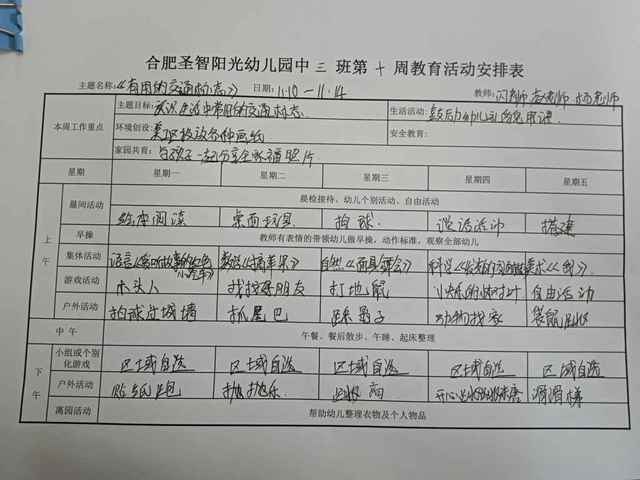 合肥圣智阳光幼儿园中三班第十周教育活动安排表
主题名称:《有用的交通标志》 日期:11.10—11.14 教师:闪老师
本周工作重点 主题目标:认识生活中常用的交通标志 生活活动:
环境创设:美区投放各种画纸 安全教育:
家园共育:与孩子一起分享全家福照片
星期 星期一 星期二 星期三 星期四 星期五
上午 晨间活动 晨检接待、幼儿个别活动、自由活动
绘本阅读 桌面玩具 拍球 谈话活动 搭建
早操 教师有表情的带领幼儿做早操,动作标准,观察全部幼儿
集体活动 语言 数学《摘苹果》 自然《面具舞会》 科学
游戏活动 木头人 找找好朋友 打地鼠 自由活动
户外活动 拍球过城墙 抓尾巴 踩影子 动物找家 袋鼠
中午 午餐、餐后散步、午睡、起床整理
下午 小组或个别化游戏 区域自选 区域自选 区域自选 区域自选 区域自选
户外活动 抛抛乐 滑滑梯
离园活动 帮助幼儿整理衣物及个人物品